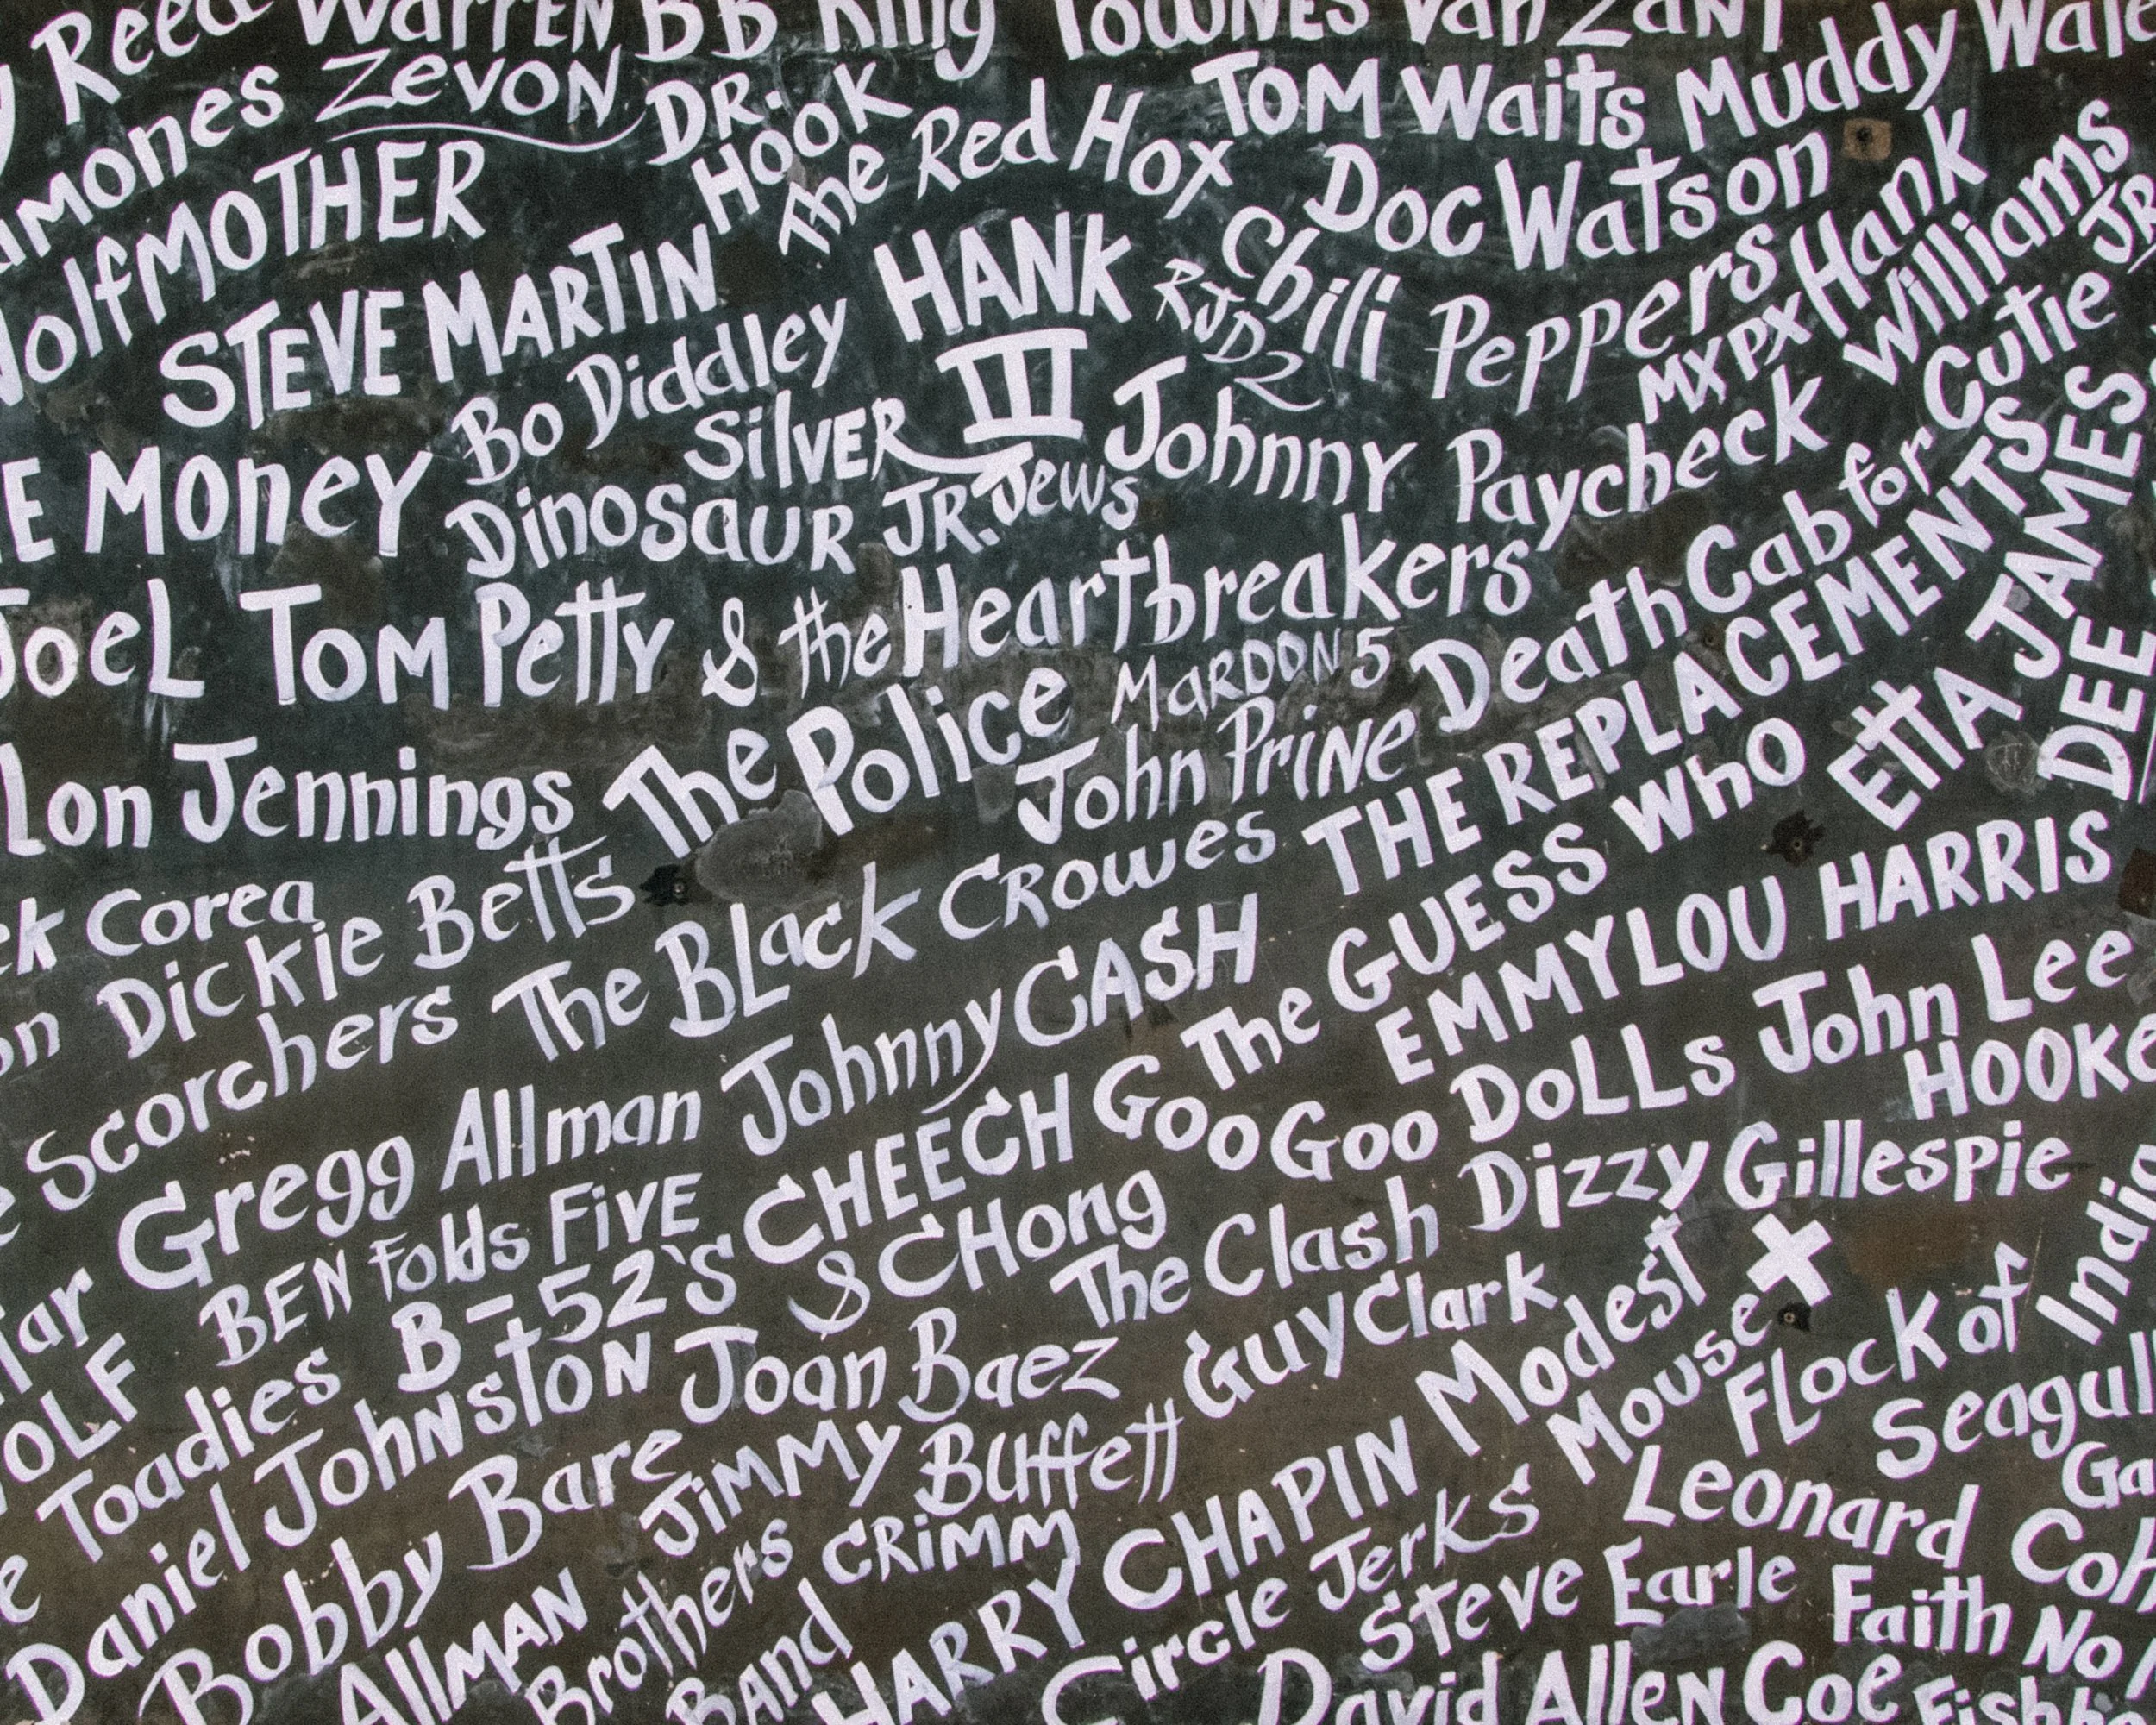 Reed Warren BB King Townes Van Zant
Zevon Dr. Hook Tom Waits Muddy
Wolfmother The Red Hot Chili Peppers Doc Watson Hank Williams Jr.
Steve Martin Hank III RJD2 MXPX
Bo Diddley
Money Silver Jews Johnny Paycheck
Dinosaur Jr. Death Cab for Cutie
Joel Tom Petty & the Heartbreakers
The Police Mardon 5 THE REPLACEMENTS ETTA JAMES
Lon Jennings John Prine DEE
Corea
Dickie Betts The Black Crowes The Guess Who
Scorchers Johnny CASH EMMYLOU HARRIS
Gregg Allman Goo Goo Dolls John Lee
BEN Folds FiVE CHEECH & CHong Dizzy Gillespie
B-52's The Clash
Toadies Joan Baez Guy Clark Modest Mouse X
Daniel Johnston Flock of Seagull
Bobby Bare Jimmy Buffett
Allman Brothers Band CRiMM HARRY CHAPIN Leonard
Circle Jerks
Steve Earle Faith No
David Allen Coe